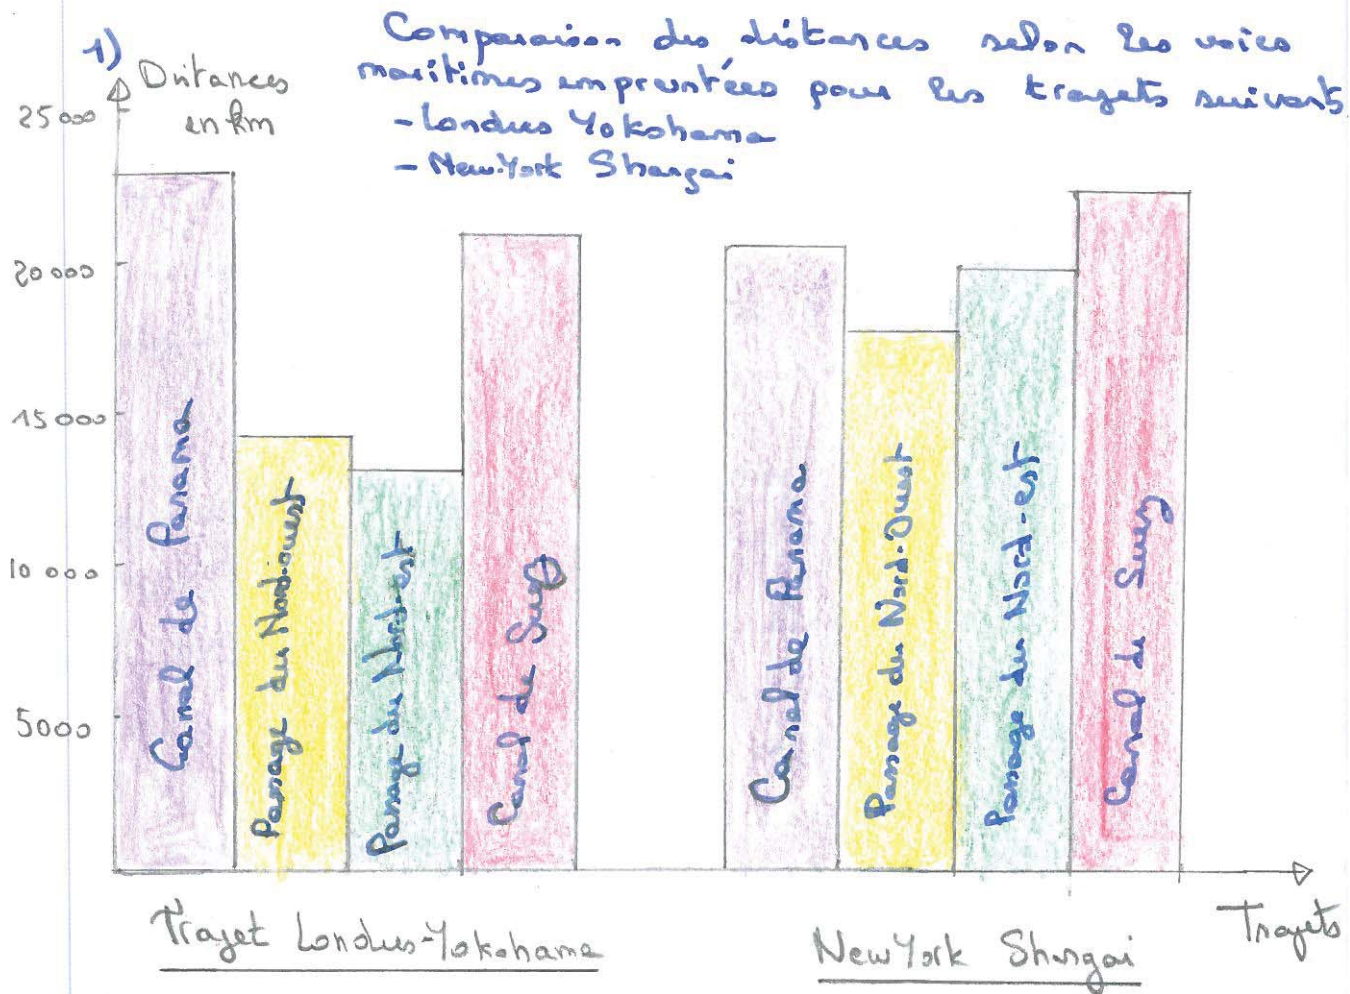 1)
Comparaison des distances selon les voies
maritimes empruntées pour les trajets suivants
- Londres Yokohama
- New-York Shangai
Distances
en km
25 000
20 000
15 000
10 000
5000
Canal de Panama
Passage du Nord-ouest
Passage du Nord-est
Canal de Suez
Canal de Panama
Passage du Nord-Ouest
Passage du Nord-est
Canal de Suez
Trajets
Trajet Londres-Yokohama
New York Shangai